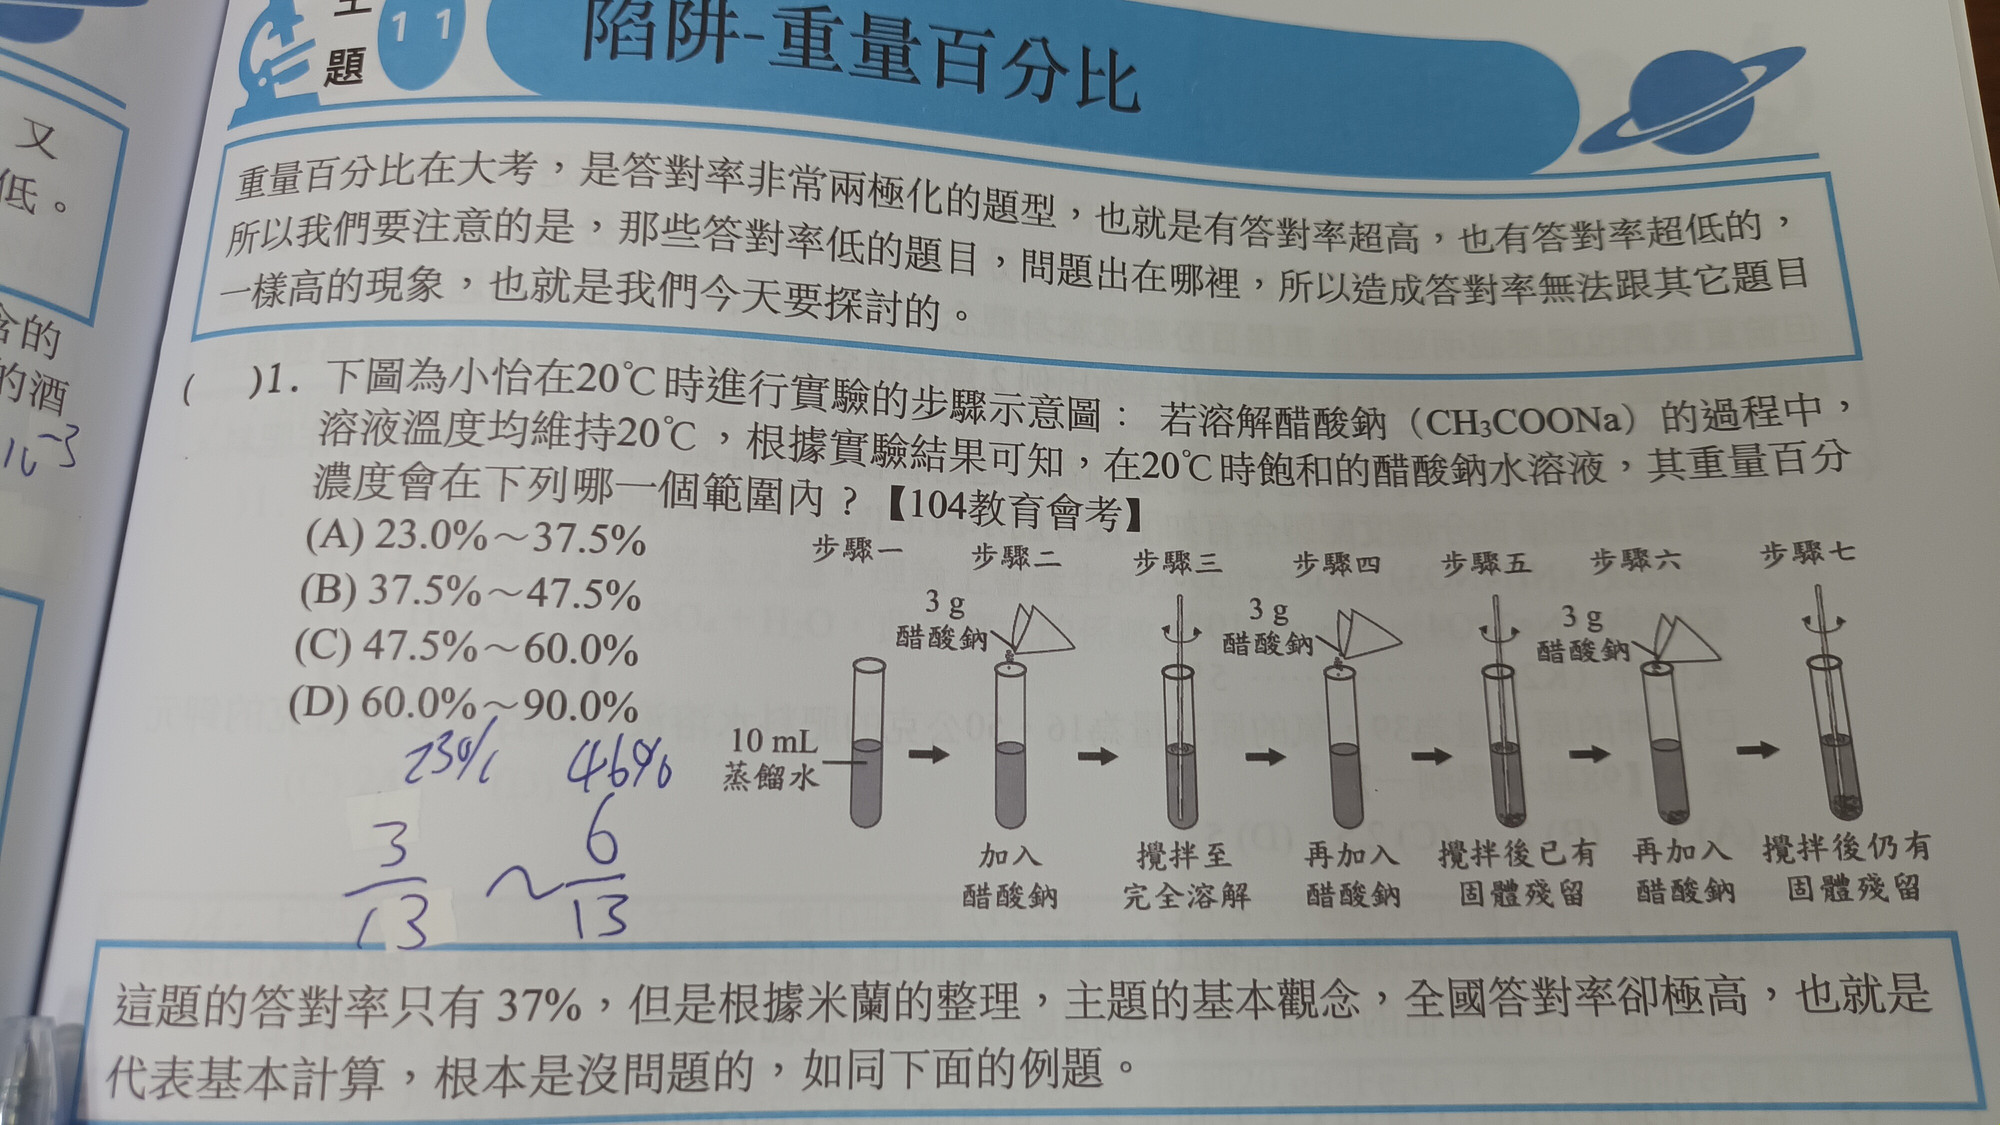 題
11
陷阱-重量百分比
又
低。
重量百分比在大考，是答對率非常兩極化的題型，也就是有答對率超高，也有答對率超低的，
所以我們要注意的是，那些答對率低的題目，問題出在哪裡，所以造成答對率無法跟其它題目
一樣高的現象，也就是我們今天要探討的。
含的
的酒
10⁻³
(　)1. 下圖為小怡在20℃時進行實驗的步驟示意圖： 若溶解醋酸鈉（CH₃COONa）的過程中，
溶液溫度均維持20℃，根據實驗結果可知，在20℃時飽和的醋酸鈉水溶液，其重量百分
濃度會在下列哪一個範圍內？【104教育會考】
(A) 23.0%～37.5%
(B) 37.5%～47.5%
(C) 47.5%～60.0%
(D) 60.0%～90.0%
步驟一 步驟二 步驟三 步驟四 步驟五 步驟六 步驟七
3 g 3 g 3 g
醋酸鈉 醋酸鈉 醋酸鈉
10 mL
蒸餾水
加入 攪拌至 再加入 攪拌後已有 再加入 攪拌後仍有
醋酸鈉 完全溶解 醋酸鈉 固體殘留 醋酸鈉 固體殘留
23% 46%
3/13 ～ 6/13
這題的答對率只有 37%，但是根據米蘭的整理，主題的基本觀念，全國答對率卻極高，也就是
代表基本計算，根本是沒問題的，如同下面的例題。